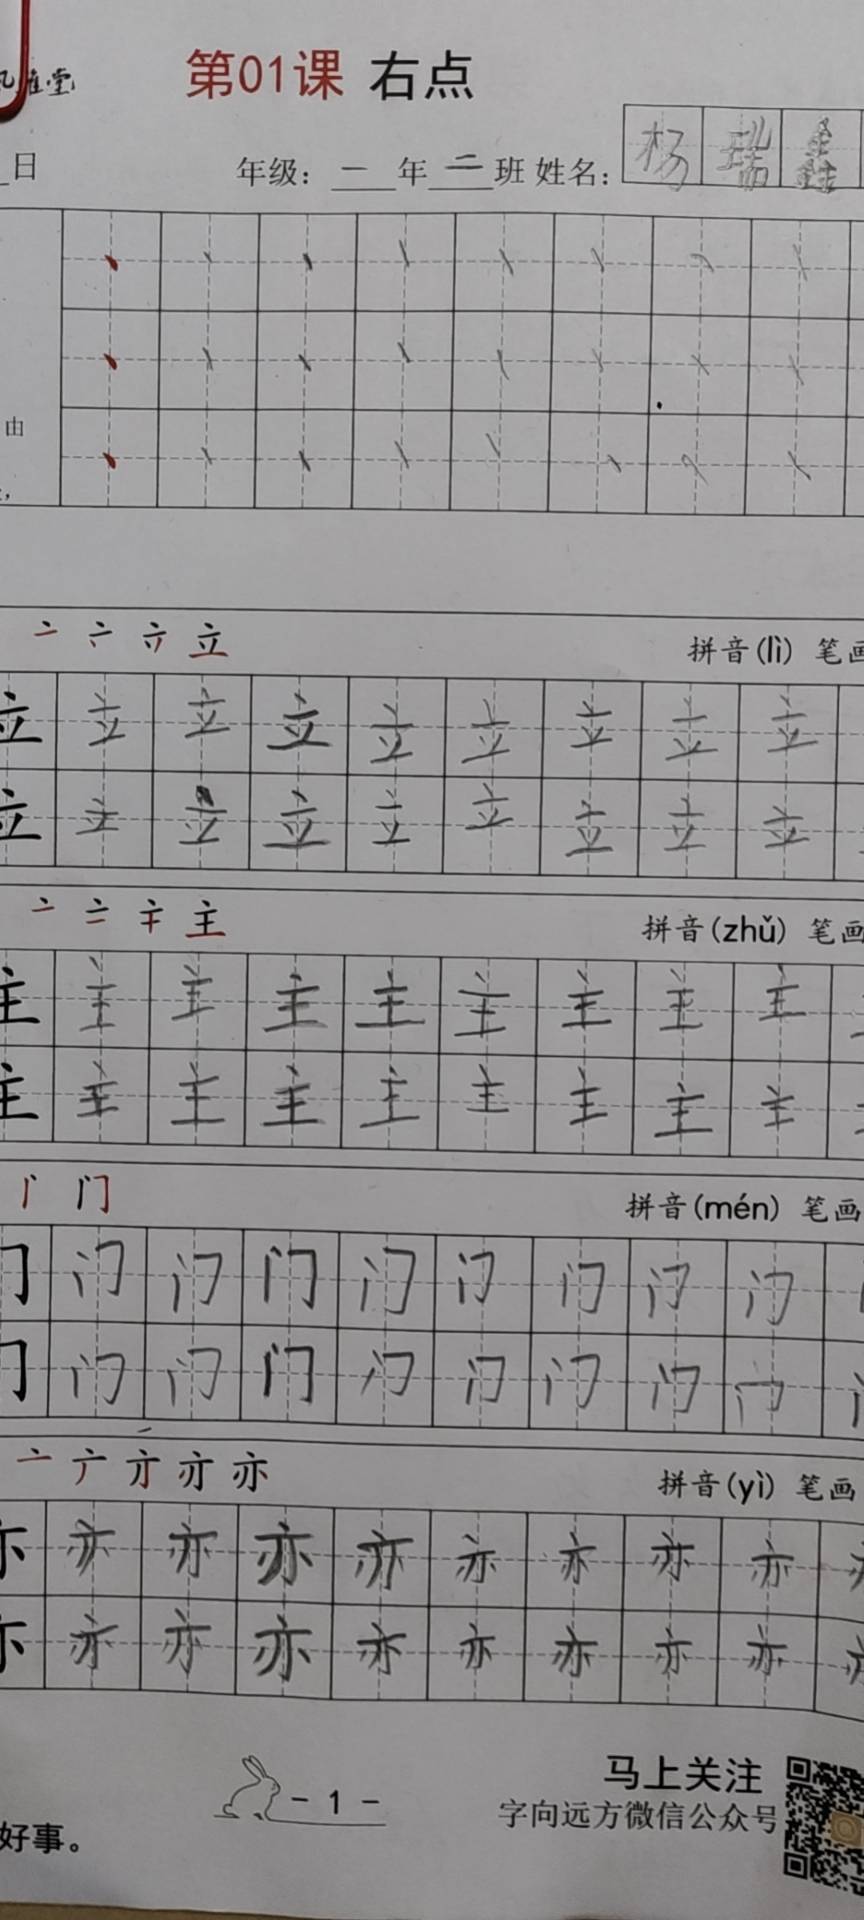 第01课 右点
日 年级：一年二班 姓名：杨瑞鑫
由
立 拼音(lì) 笔画
立 立 立 立 立 立 立 立 立
立 立 立 立 立 立 立 立 立
主 拼音(zhǔ) 笔画
主 主 主 主 主 主 主 主 主
主 主 主 主 主 主 主 主 主
门 拼音(mén) 笔画
门 门 门 门 门 门 门 门 门
门 门 门 门 门 门 门 门 门
亦 拼音(yì) 笔画
亦 亦 亦 亦 亦 亦 亦 亦 亦
亦 亦 亦 亦 亦 亦 亦 亦 亦
- 1 -
马上关注
字向远方微信公众号
好事。